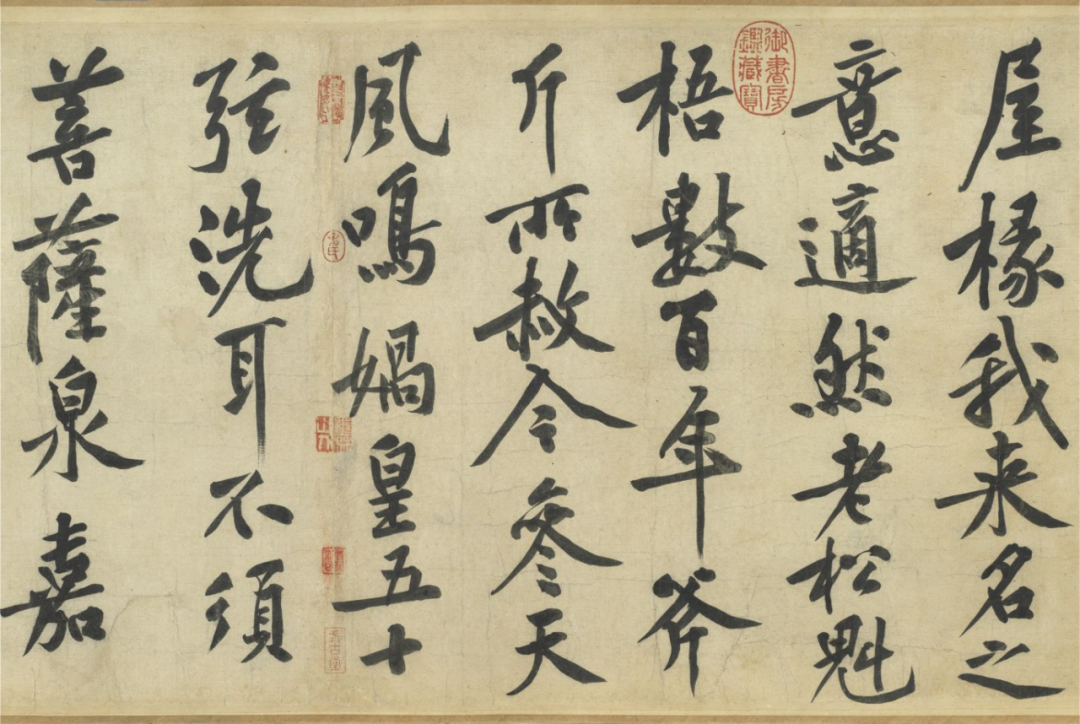 屋椽我来名之
意適然老松魁
梧數百年斧
斤所赦今參天
風鳴媧皇五十
弦洗耳不須
菩薩泉嘉
御書房鑑藏寶